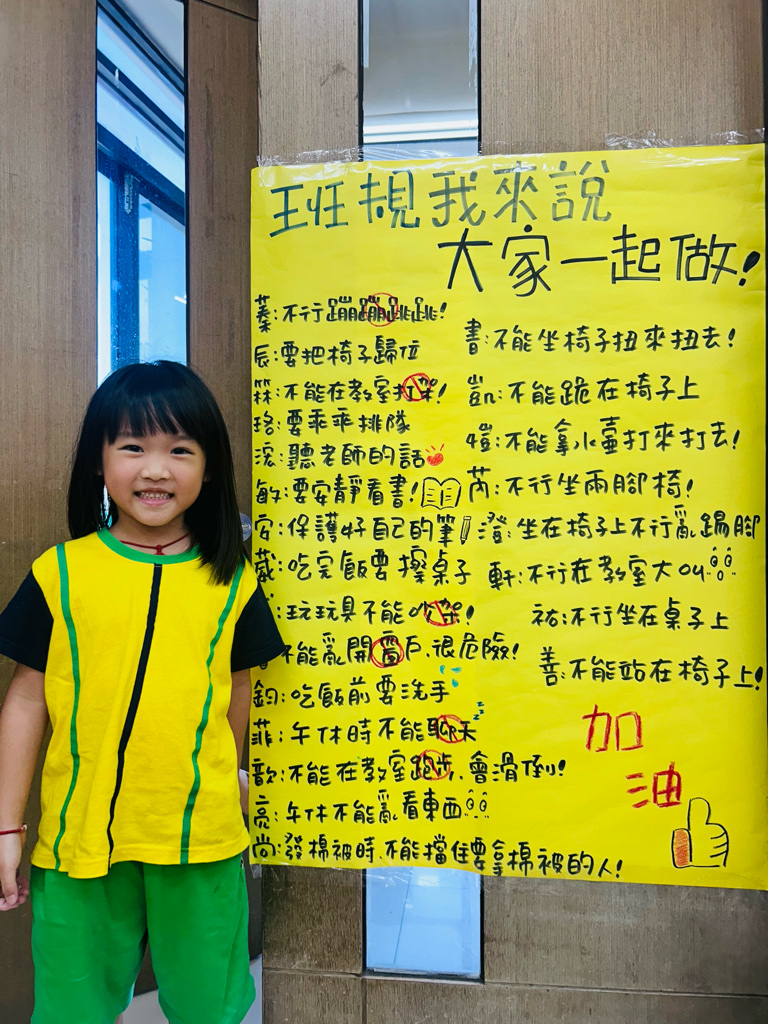 班規我來說
大家一起做!
蓁:不行蹦蹦跳跳!
辰:要把椅子歸位
霖:不能在教室打架!
珞:要乖乖排隊
浤:聽老師的話
敏:要安靜看書!
安:保護好自己的筆
葳:吃完飯要擦桌子
:玩玩具不能吵架!
不能亂開窗戶、很危險!
鈞:吃飯前要洗手
菲:午休時不能聊天
歆:不能在教室跑步、會滑倒!
亮:午休不能亂看東西
尚:發棉被時、不能擋住要拿棉被的人!
書:不能坐椅子扭來扭去!
凱:不能跪在椅子上
愷:不能拿水壺打來打去!
芮:不行坐兩腳椅!
澄:坐在椅子上不行亂踢腳
軒:不行在教室大ㄐㄧㄠ
祐:不行坐在桌子上
善:不能站在椅子上!
加
油